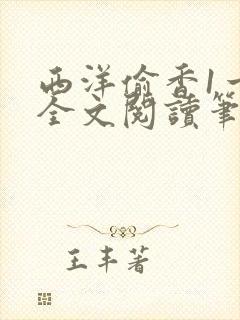 西洋偷香1一
全文閱讀筆
王丰著